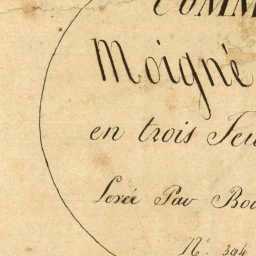 COMM
Moigné
en trois Feu
Levée Par Bo
N.° 394